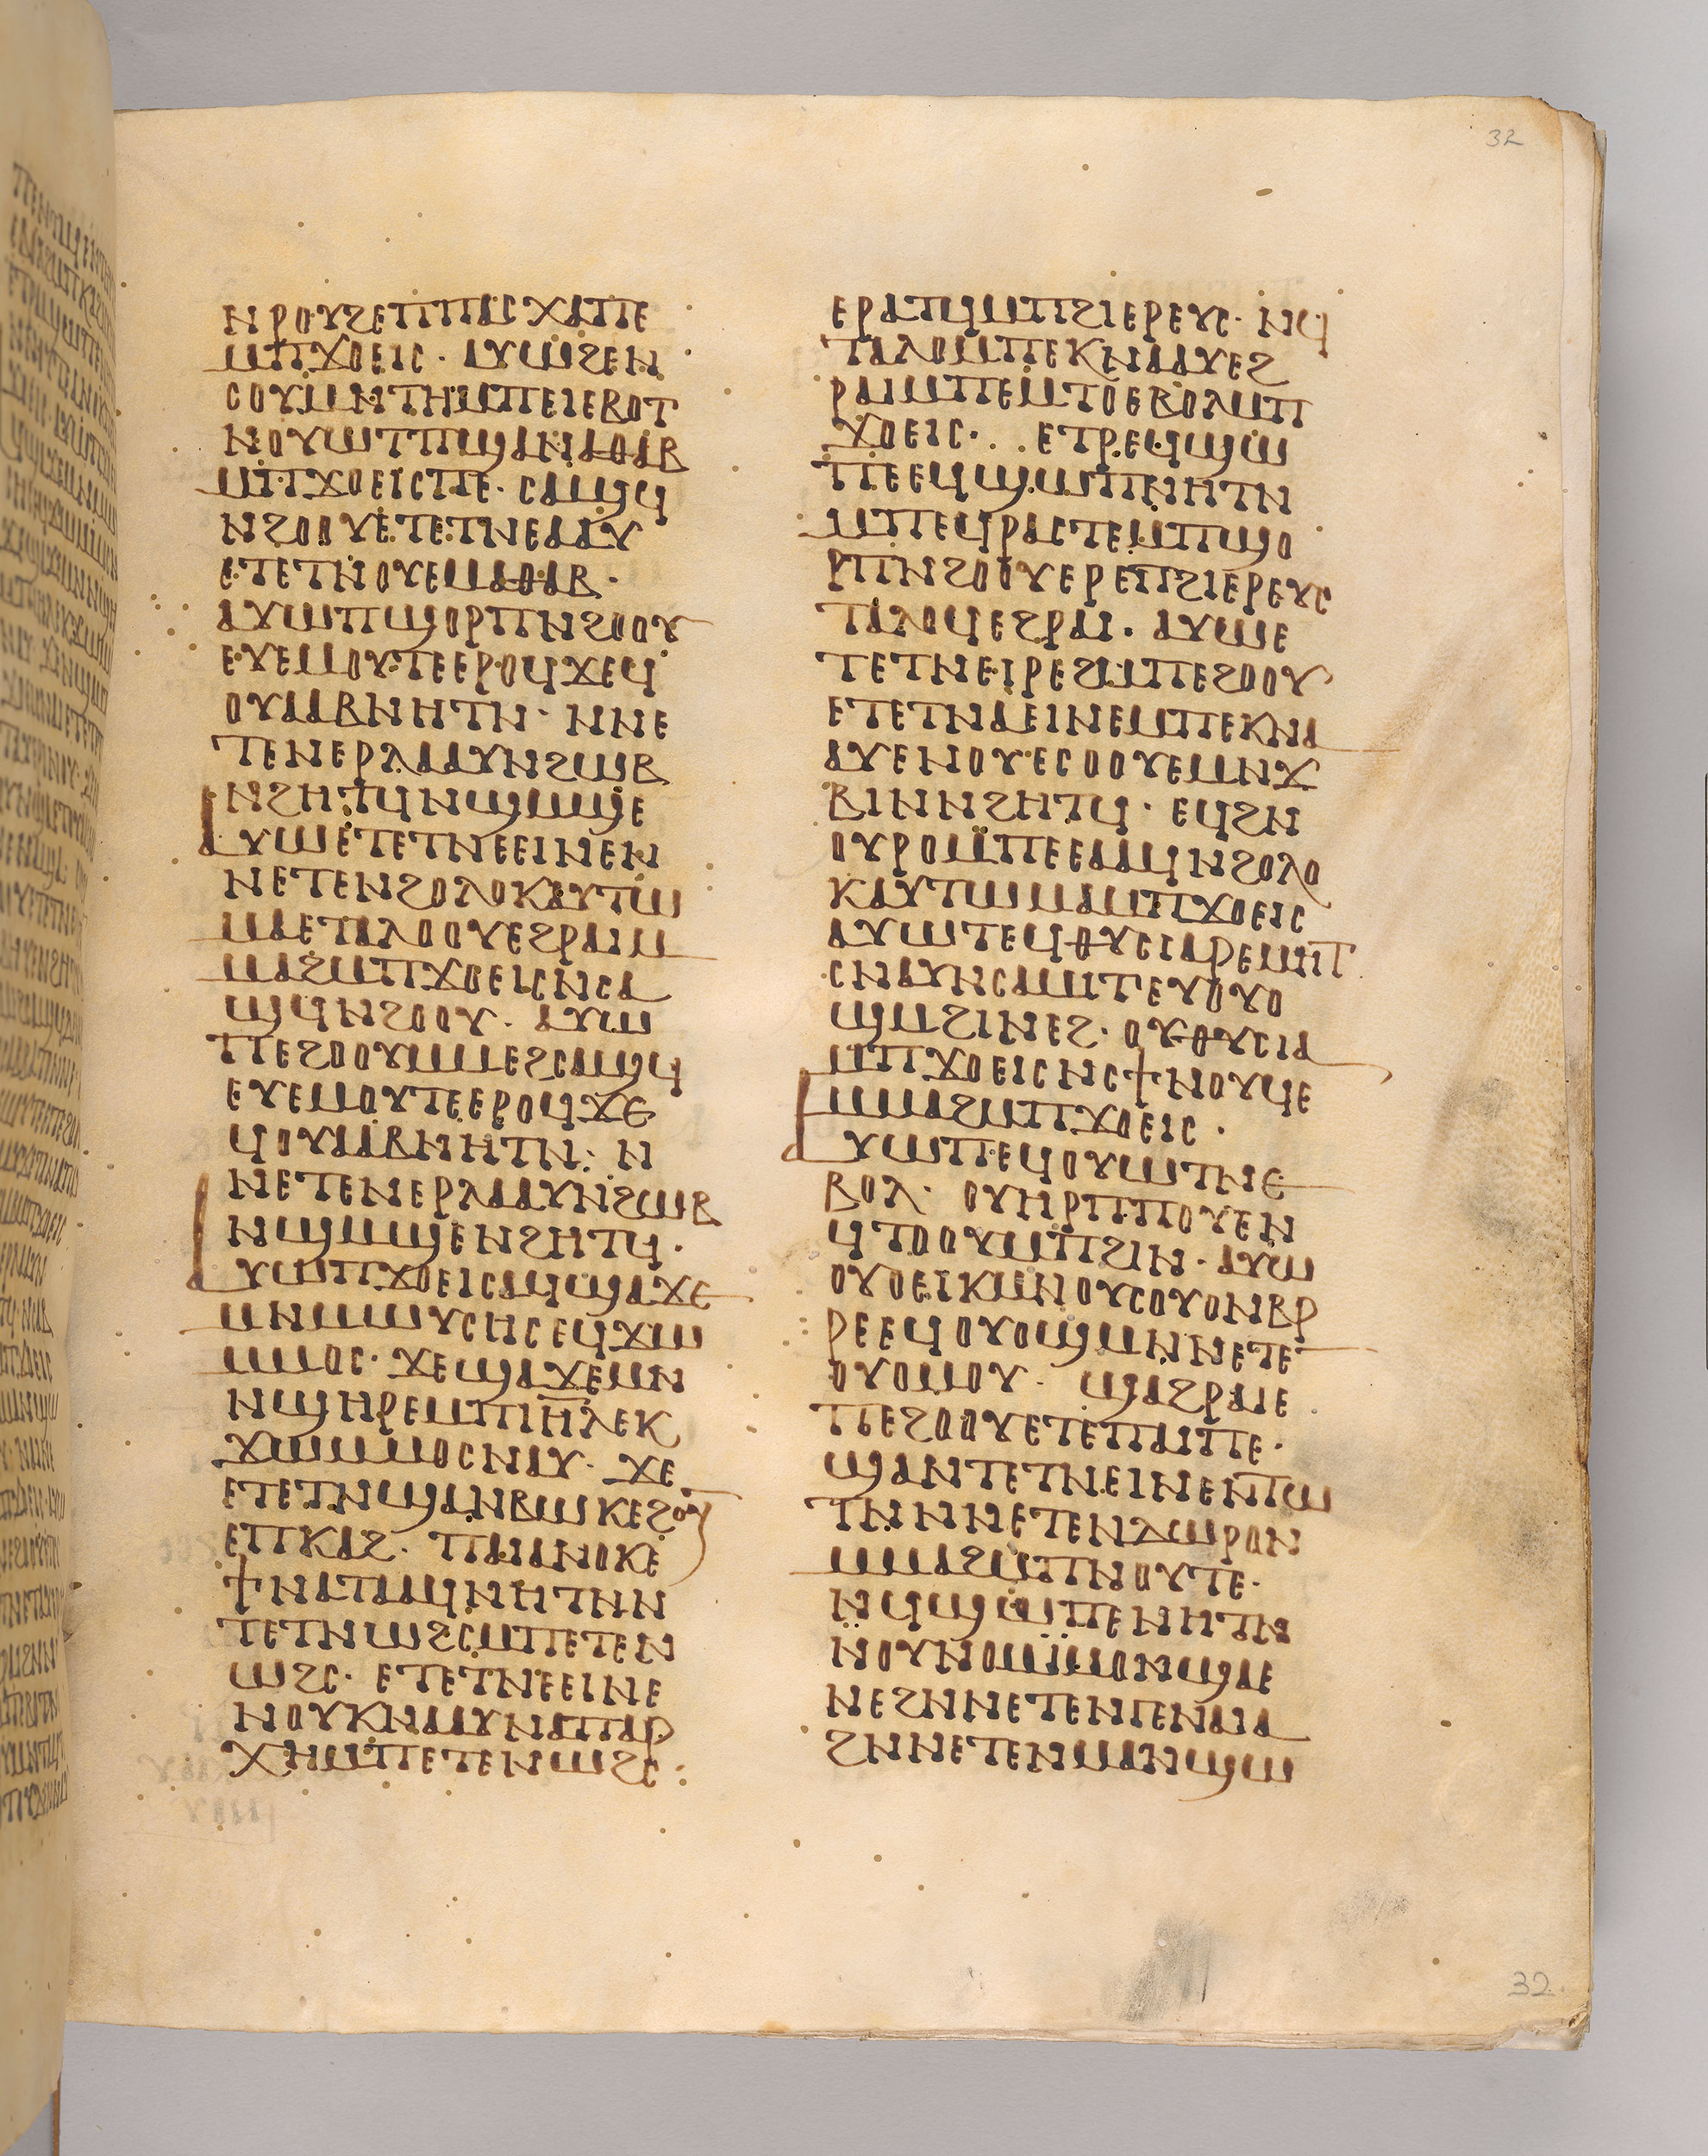 32
ⲛⲣⲟⲩϩⲉⲡⲡⲁⲥⲭⲁⲡⲉ
ⲙⲡϫⲟⲉⲓⲥ· ⲁⲩⲱϩⲉⲛ
ⲥⲟⲩⲙⲛⲧⲏⲙⲡⲉⲓⲉⲃⲟⲧ
ⲛⲟⲩⲱⲧⲡϣⲁⲛⲁⲑⲁⲃ
ⲙⲡϫⲟⲉⲓⲥⲡⲉ· ⲥⲁϣϥ
ⲛϩⲟⲟⲩⲉⲧⲉⲧⲛⲉⲁⲁⲩ
ⲉⲧⲉⲧⲛⲟⲩⲉⲙⲁⲑⲁⲃ·
ⲁⲩⲱⲡϣⲟⲣⲡⲛϩⲟⲟⲩ
ⲉⲩⲉⲙⲟⲩⲧⲉⲉⲣⲟϥϫⲉϥ
ⲟⲩⲁⲁⲃⲛⲏⲧⲛ· ⲛⲛⲉ
ⲧⲉⲛⲉⲣⲗⲁⲁⲩⲛϩⲱⲃ
ⲛϩⲏⲧϥⲛϣⲙϣⲉ
ⲁⲩⲱⲉⲧⲉⲧⲛⲉⲉⲓⲛⲉⲛ
ⲛⲉⲧⲉⲛϩⲟⲗⲟⲕⲁⲩⲧⲱ
ⲙⲁⲉⲧⲁⲗⲟⲟⲩⲉϩⲣⲁⲓⲙ
ⲙⲁϩⲙⲡϫⲟⲉⲓⲥⲛⲥⲁ
ϣϥⲛϩⲟⲟⲩ· ⲁⲩⲱ
ⲡⲉϩⲟⲟⲩⲙⲙⲉϩⲥⲁϣϥ
ⲉⲩⲉⲙⲟⲩⲧⲉⲉⲣⲟϥϫⲉ
ϥⲟⲩⲁⲁⲃⲛⲏⲧⲛ: ⲛ
ⲛⲉⲧⲉⲛⲉⲣⲗⲁⲁⲩⲛϩⲱⲃ
ⲛϣⲙϣⲉⲛϩⲏⲧϥ·
ⲁⲩⲱⲡϫⲟⲉⲓⲥⲁϥϣⲁϫⲉ
ⲙⲛⲙⲱⲩⲥⲏⲥⲉϥϫⲱ
ⲙⲙⲟⲥ· ϫⲉϣⲁϫⲉⲙⲛ
ⲛϣⲏⲣⲉⲙⲡⲓⲏ̅ⲗ̅ⲉⲕ
ϫⲱⲙⲙⲟⲥⲛⲁⲩ· ϫⲉ
ⲉⲧⲉⲧⲛϣⲁⲛⲃⲱⲕⲉϩⲟⲩ
ⲉⲡⲕⲁϩ· ⲡⲁⲓⲁⲛⲟⲕⲉ
ϯⲛⲁⲧⲁⲁϥⲛⲏⲧⲛⲛ
ⲧⲉⲧⲛⲱϩⲥⲙⲡⲉⲧⲉⲛ
ⲱϩⲥ· ⲉⲧⲉⲧⲛⲉⲉⲓⲛⲉ
ⲛⲟⲩⲕⲛⲁⲁⲩⲛⲁⲡⲁⲣ
ⲭⲏⲙⲡⲉⲧⲉⲛⲱϩⲥ:
ⲉⲣⲁⲧϥⲙⲡϩⲓⲉⲣⲉⲩⲥ· ⲛϥ
ⲧⲁⲗⲟⲙⲡⲉⲕⲛⲁⲁⲩⲉϩ
ⲣⲁⲓⲙⲡⲉⲙⲧⲟⲉⲃⲟⲗⲙⲡ
ϫⲟⲉⲓⲥ· ⲉⲧⲣⲉϥϣⲱ
ⲡⲉⲉϥϣⲏⲡⲛⲏⲧⲛ
ⲙⲡⲉϥⲣⲁⲥⲧⲉⲙⲡϣⲟ
ⲣⲡⲛϩⲟⲟⲩⲉⲣⲉⲡϩⲓⲉⲣⲉⲩⲥ
ⲧⲁⲗⲟϥⲉϩⲣⲁⲓ· ⲁⲩⲱⲉ
ⲧⲉⲧⲛⲉⲓⲣⲉϩⲙⲡⲉϩⲟⲟⲩ
ⲉⲧⲉⲧⲛⲁⲉⲓⲛⲉⲙⲡⲉⲕⲛⲁ
ⲁⲩⲉⲛⲟⲩⲉⲥⲟⲟⲩⲉⲙⲛϫ
ⲃⲓⲛⲛϩⲏⲧϥ· ⲉϥϩⲛ
ⲟⲩⲣⲟⲙⲡⲉⲉⲁⲁϥⲛϩⲟⲗⲟ
ⲕⲁⲩⲧⲱⲙⲁⲙⲡϫⲟⲉⲓⲥ
ⲁⲩⲱⲧⲉϥⲑⲩⲥⲓⲁⲣⲉⲙⲏⲧ
ⲥⲛⲁⲩⲛⲥⲁⲙⲓⲧⲉⲩⲟⲩⲟ
ϣⲙϩⲓⲛⲉϩ· ⲟⲩⲑⲩⲥⲓⲁ
ⲙⲡϫⲟⲉⲓⲥⲛⲥϯⲛⲟⲩϥⲉ
ⲙⲙⲁϩⲙⲡϫⲟⲉⲓⲥ·
ⲁⲩⲱⲡⲉϥⲟⲩⲱⲧⲛⲉ
ⲃⲟⲗ· ⲟⲩⲏⲣⲡⲡⲟⲩⲉⲛ
ϥⲧⲟⲟⲩⲙⲡϩⲓⲛ· ⲁⲩⲱ
ⲟⲩⲟⲉⲓⲕⲙⲛⲟⲩⲥⲟⲩⲟⲛⲃⲣ
ⲣⲉⲉϥⲟⲩⲟϣⲙⲛⲛⲉⲧⲉ
ⲟⲩⲟⲙⲟⲩ· ϣⲁϩⲣⲁⲓⲉ
ⲡⲉϩⲟⲟⲩⲉⲧⲉⲡⲁⲓⲡⲉ·
ϣⲁⲛⲧⲉⲧⲛⲉⲓⲛⲉⲛⲧⲱ
ⲧⲛⲛⲛⲉⲧⲉⲛⲇⲱⲣⲟⲛ
ⲙⲙⲁϩⲙⲡⲛⲟⲩⲧⲉ·
ⲛϥϣⲱⲡⲉⲛⲏⲧⲛ
ⲛⲟⲩⲛⲟⲙⲓⲙⲟⲛϣⲁⲉ
ⲛⲉϩⲛⲛⲉⲧⲉⲛⲅⲉⲛⲉⲁ
ϩⲛⲛⲉⲧⲉⲛⲙⲁⲛϣⲱ
32